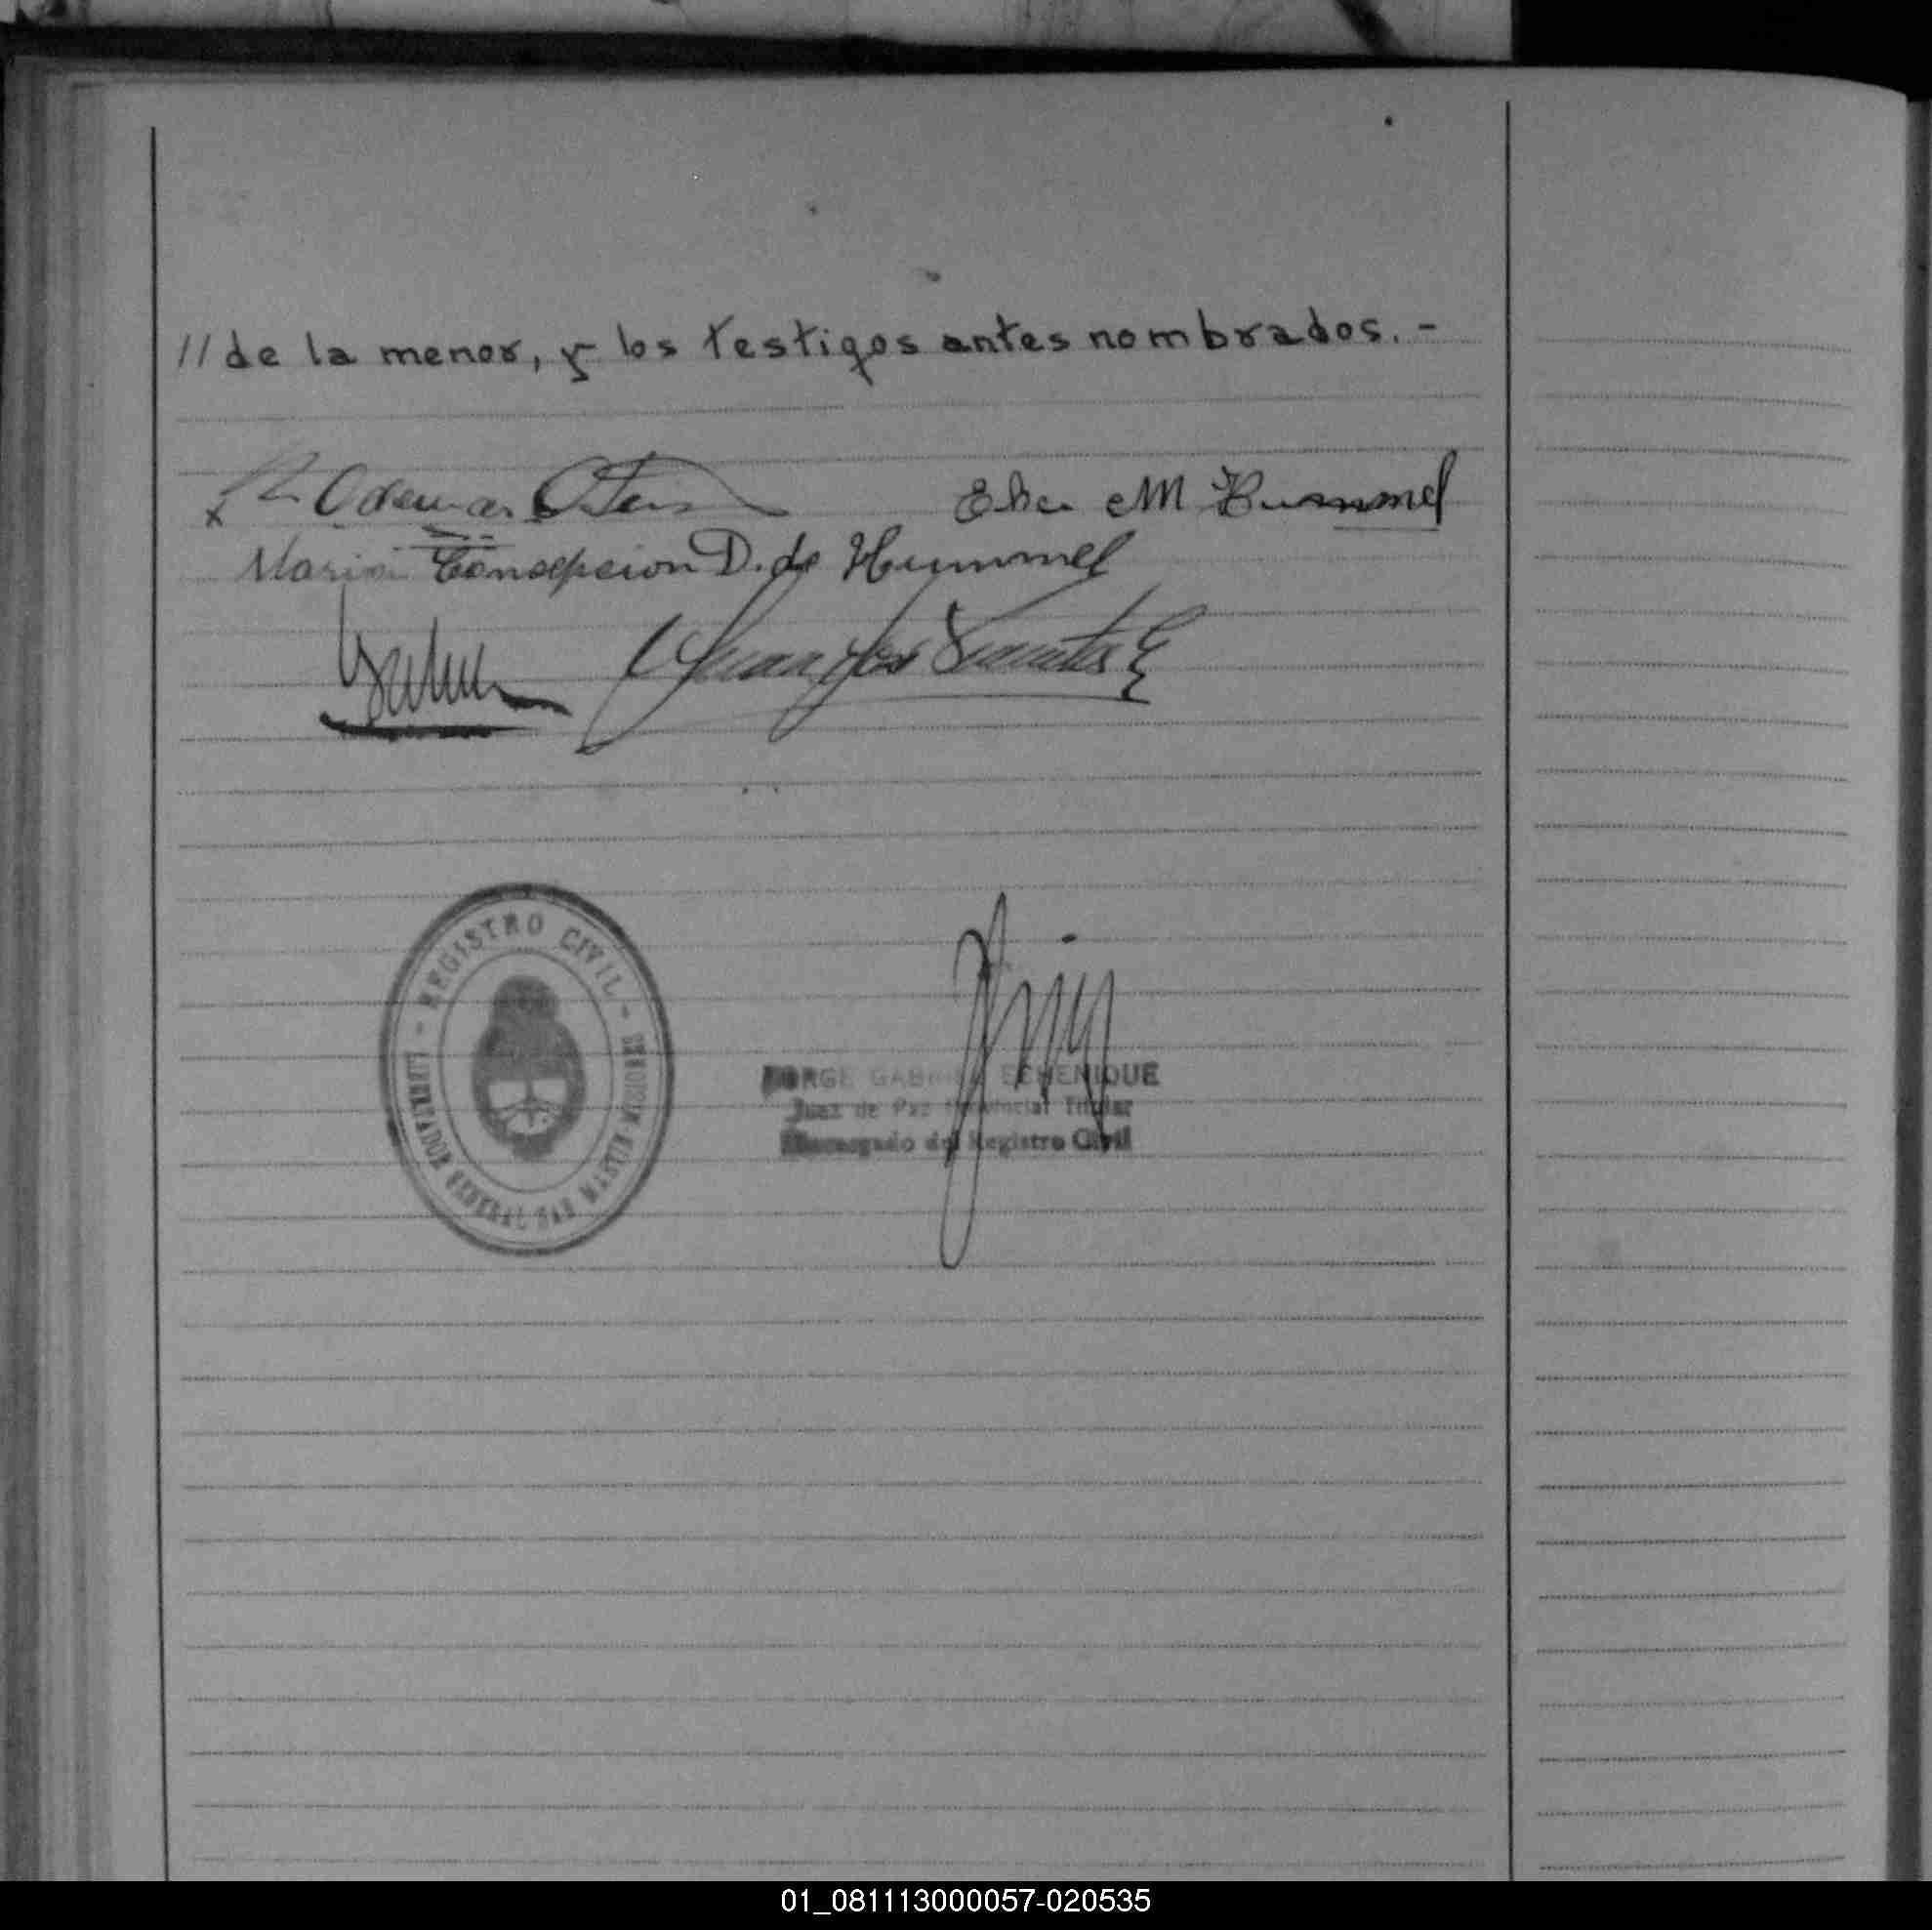 // de la menor, y los testigos antes nombrados. -
M Hummel
Maria Concepcion D. de Hummel
- REGISTRO CIVIL -
LIBERTADOR GENERAL SAN MARTIN MISIONES
JORGE GABRIEL ECHENIQUE
Juez de Paz Provincial Titular
Encargado del Registro Civil
01_081113000057-020535